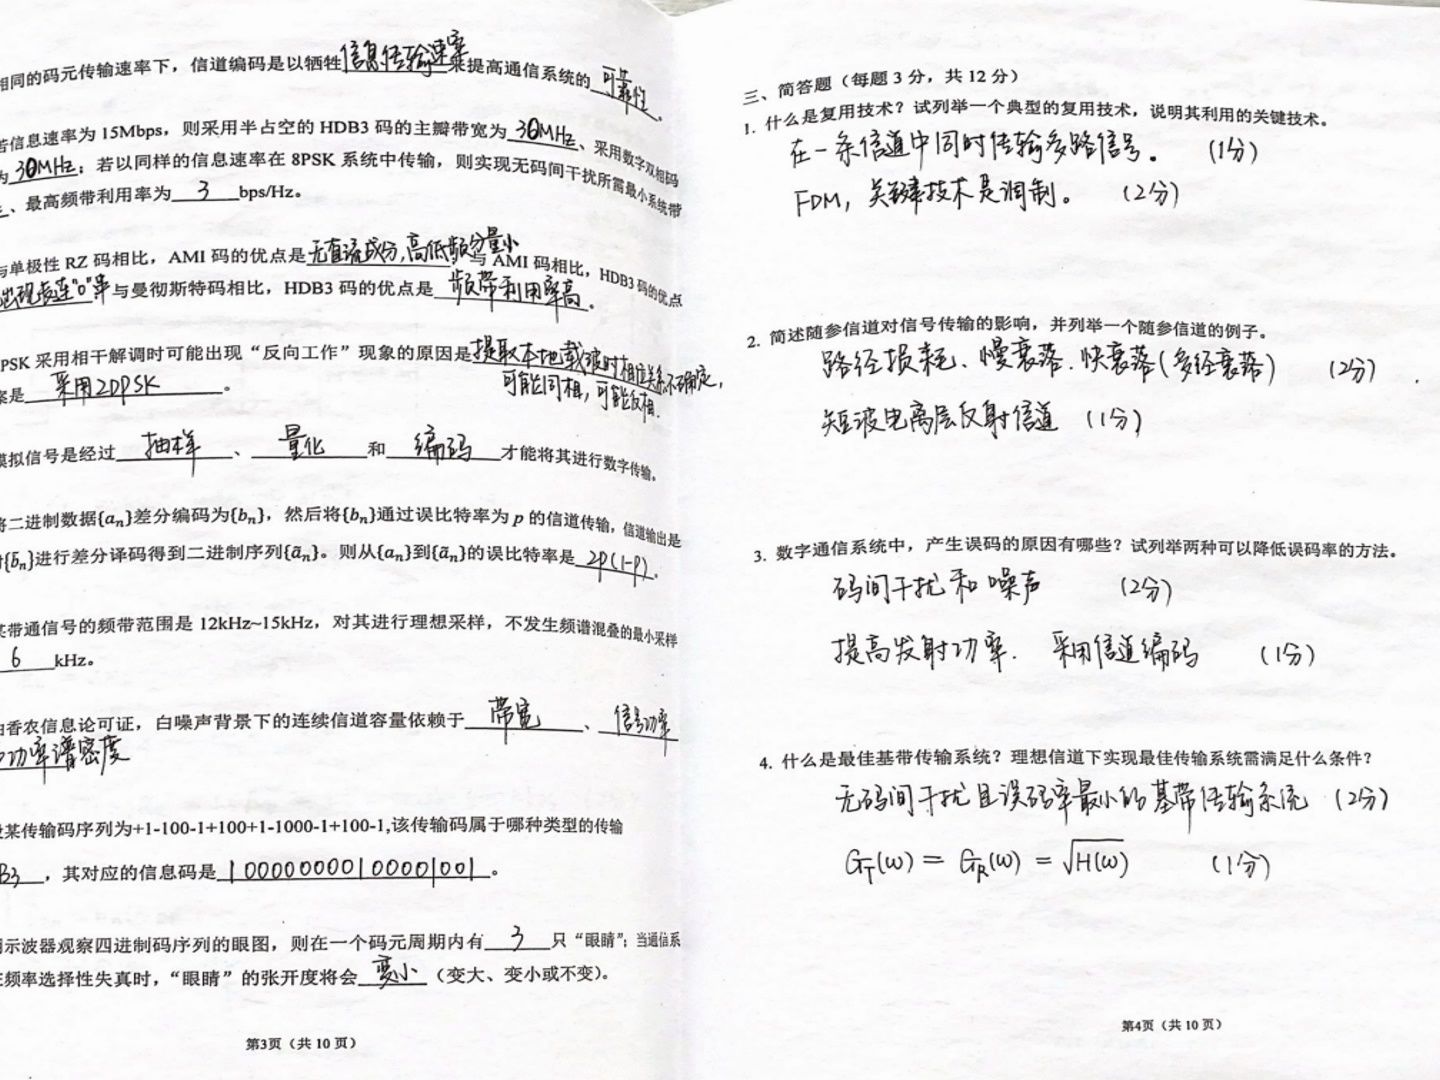 相同的码元传输速率下，信道编码是以牺牲信息传输速率来提高通信系统的可靠性。
若信息速率为 15Mbps，则采用半占空的 HDB3 码的主瓣带宽为 30MHz、采用数字双相码
为 30MHz；若以同样的信息速率在 8PSK 系统中传输，则实现无码间干扰所需最小系统带
、最高频带利用率为 3 bps/Hz。
与单极性 RZ 码相比，AMI 码的优点是无直流成分,高低频分量小 与 AMI 码相比，HDB3 码的优点
出现长连"0"串 与曼彻斯特码相比，HDB3 码的优点是 频带利用率高。
PSK 采用相干解调时可能出现“反向工作”现象的原因是提取本地载波时相位关系不确定,
可能同相,可能反相.
案是 采用2DPSK 。
模拟信号是经过 抽样 、 量化 和 编码 才能将其进行数字传输。
将二进制数据{aₙ}差分编码为{bₙ}，然后将{bₙ}通过误比特率为 p 的信道传输，信道输出是
对{b̄ₙ}进行差分译码得到二进制序列{āₙ}。则从{aₙ}到{āₙ}的误比特率是 2p(1-p)。
某带通信号的频带范围是 12kHz~15kHz，对其进行理想采样，不发生频谱混叠的最小采样
6 kHz。
由香农信息论可证，白噪声背景下的连续信道容量依赖于 带宽 、 信号功率
功率谱密度
某传输码序列为+1-100-1+100+1-1000-1+100-1,该传输码属于哪种类型的传输
B3 ，其对应的信息码是 1000000001000010​01 。
用示波器观察四进制码序列的眼图，则在一个码元周期内有 3 只“眼睛”；当通信系
在频率选择性失真时，“眼睛”的张开度将会 变小 （变大、变小或不变）。
第3页（共 10 页）
三、简答题（每题 3 分，共 12 分）
1. 什么是复用技术？试列举一个典型的复用技术，说明其利用的关键技术。
在一条信道中同时传输多路信号。 (1分)
FDM，关键技术是调制。 (2分)
2. 简述随参信道对信号传输的影响，并列举一个随参信道的例子。
路径损耗、慢衰落、快衰落(多径衰落) (2分)
短波电离层反射信道 (1分)
3. 数字通信系统中，产生误码的原因有哪些？试列举两种可以降低误码率的方法。
码间干扰和噪声 (2分)
提高发射功率. 采用信道编码 (1分)
4. 什么是最佳基带传输系统？理想信道下实现最佳传输系统需满足什么条件？
无码间干扰且误码率最小的基带传输系统 (2分)
G_T(ω) = G_R(ω) = √H(ω) (1分)
第4页（共 10 页）